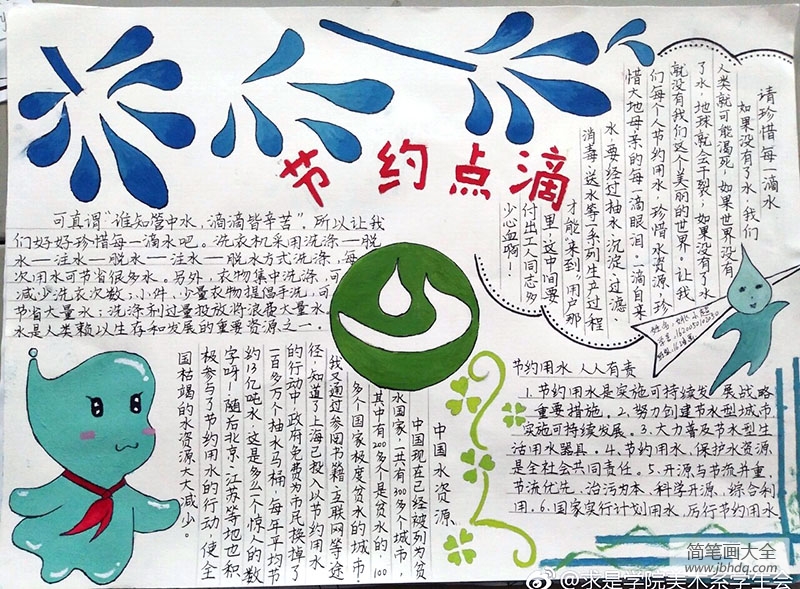 节约点滴
可真谓“谁知管中水,滴滴皆辛苦”。所以让我
们好好珍惜每一滴水吧。洗衣机采用洗涤—脱
水—注水—脱水—注水—脱水方式洗涤,每
次用水可节省很多水。另外,衣物集中洗涤,可
减少洗衣次数;小件、少量衣物提倡手洗,可
节省大量水;洗涤剂过量投放将浪费大量水。
水是人类赖以生存和发展的重要资源之一。
请珍惜每一滴水
如果没有了水,我们
人类就可能渴死,如果世界没有
了水,地球就会干裂,如果没有了水
就没有我们这个美丽的世界。让我
们每个人节约用水,珍惜水资源,珍
惜大地母亲的每一滴眼泪。滴自来
水,要经过抽水、沉淀、过滤、
消毒、送水等一系列生产过程
才能来到用户那
里,这中间要
付出工人同志多
少心血啊!
姓名:
学号:
班级:
中国水资源
中国现在已经被列为贫
水国家,一共有300多个城市,
其中有200多个是贫水的,100
多个国家极度贫水的城市!
我又通过参阅书籍、互联网等途
径,知道了上海已投入以节约用水
的行动中,政府免费为市民换掉了
一百多万个抽水马桶,每年平均节
约13亿吨水,这是多么一个惊人的数
字呀!随后北京、江苏等地也积
极参与了节约用水的行动,使全
国枯竭的水资源大大减少。
节约用水 人人有责
1.节约用水是实施可持续发展战略
重要措施。2.努力创建节水型城市,
实施可持续发展。3.大力普及节水型生
活用水器具。4.节约用水、保护水资源,
是全社会共同责任。5.开源与节流并重,
节流优先、治污为本、科学开源、综合利
用。6.国家实行计划用水,厉行节约用水
简笔画大全
www.jbhdq.com
@求是学院美术系学生会